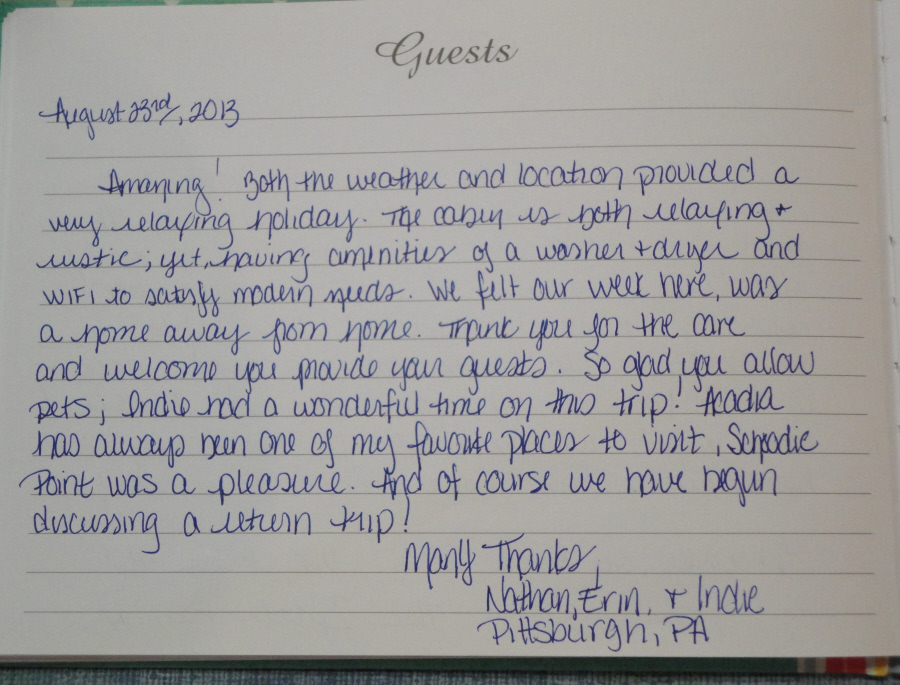 Guests
August 23rd, 2013
Amazing! Both the weather and location provided a
very relaxing holiday. The cabin is both relaxing +
rustic; yet, having amenities of a washer + dryer and
WIFI to satisfy modern needs. We felt our week here, was
a home away from home. Thank you for the care
and welcome you provide your guests. So glad you allow
pets; Indie had a wonderful time on this trip! Acadia
has always been one of my favorite places to visit, Schoodic
Point was a pleasure. And of course we have begun
discussing a return trip!
Many Thanks,
Nathan, Erin, + Indie
Pittsburgh, PA